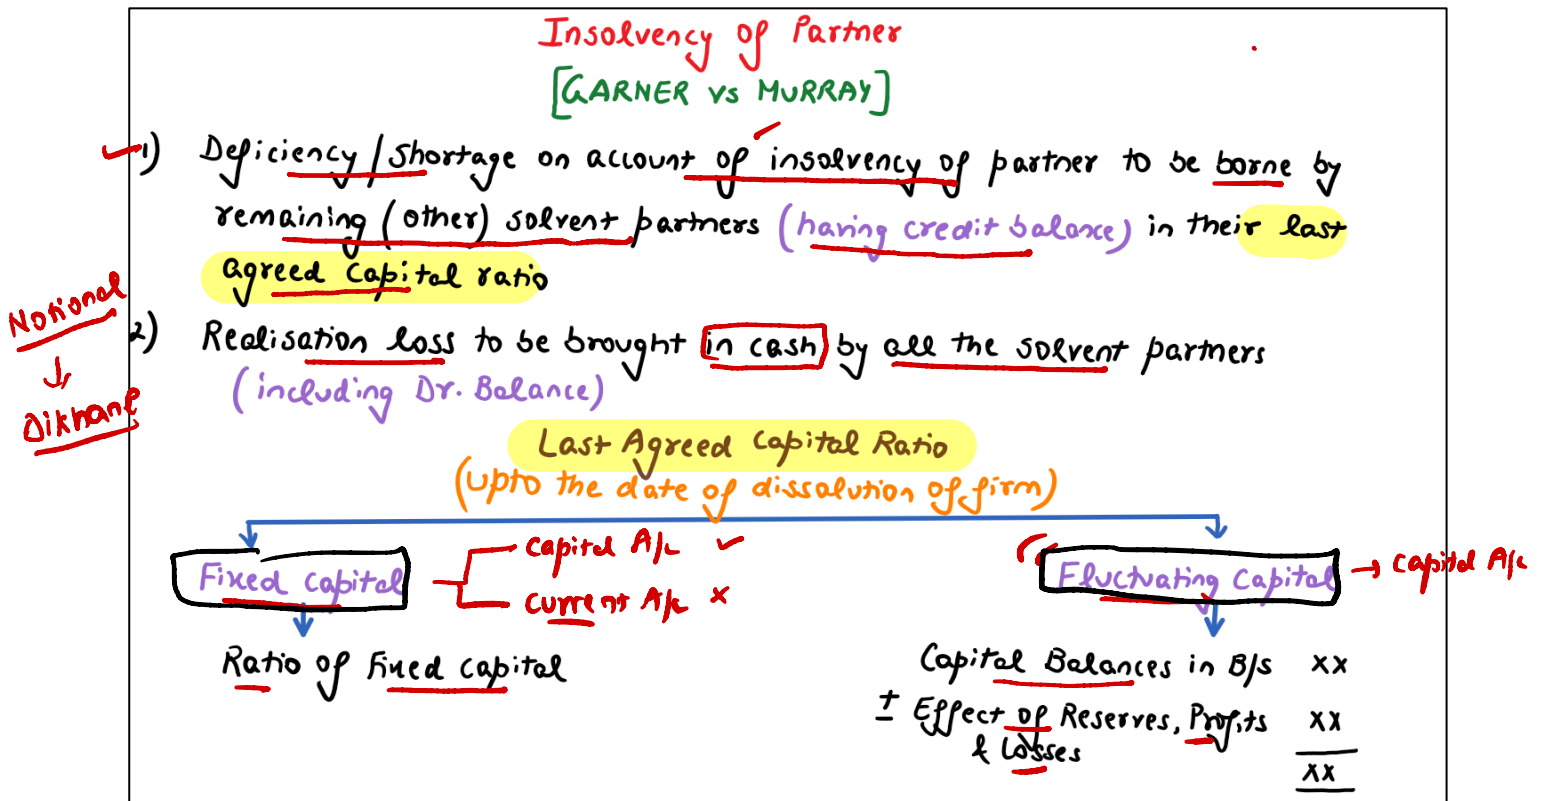 Insolvency of Partner
[GARNER vs MURRAY]
1) Deficiency / Shortage on account of insolvency of partner to be borne by
remaining (other) solvent partners (having credit balance) in their last
agreed capital ratio
Notional
↓
Dikhane
2) Realisation loss to be brought in cash by all the solvent partners
(including Dr. Balance)
Last Agreed Capital Ratio
(upto the date of dissolution of firm)
Fixed Capital
Capital A/c ✓
Current A/c ×
Fluctuating Capital → Capital A/c
Ratio of Fixed capital
Capital Balances in B/s xx
± Effect of Reserves, Profits xx
& Losses
xx